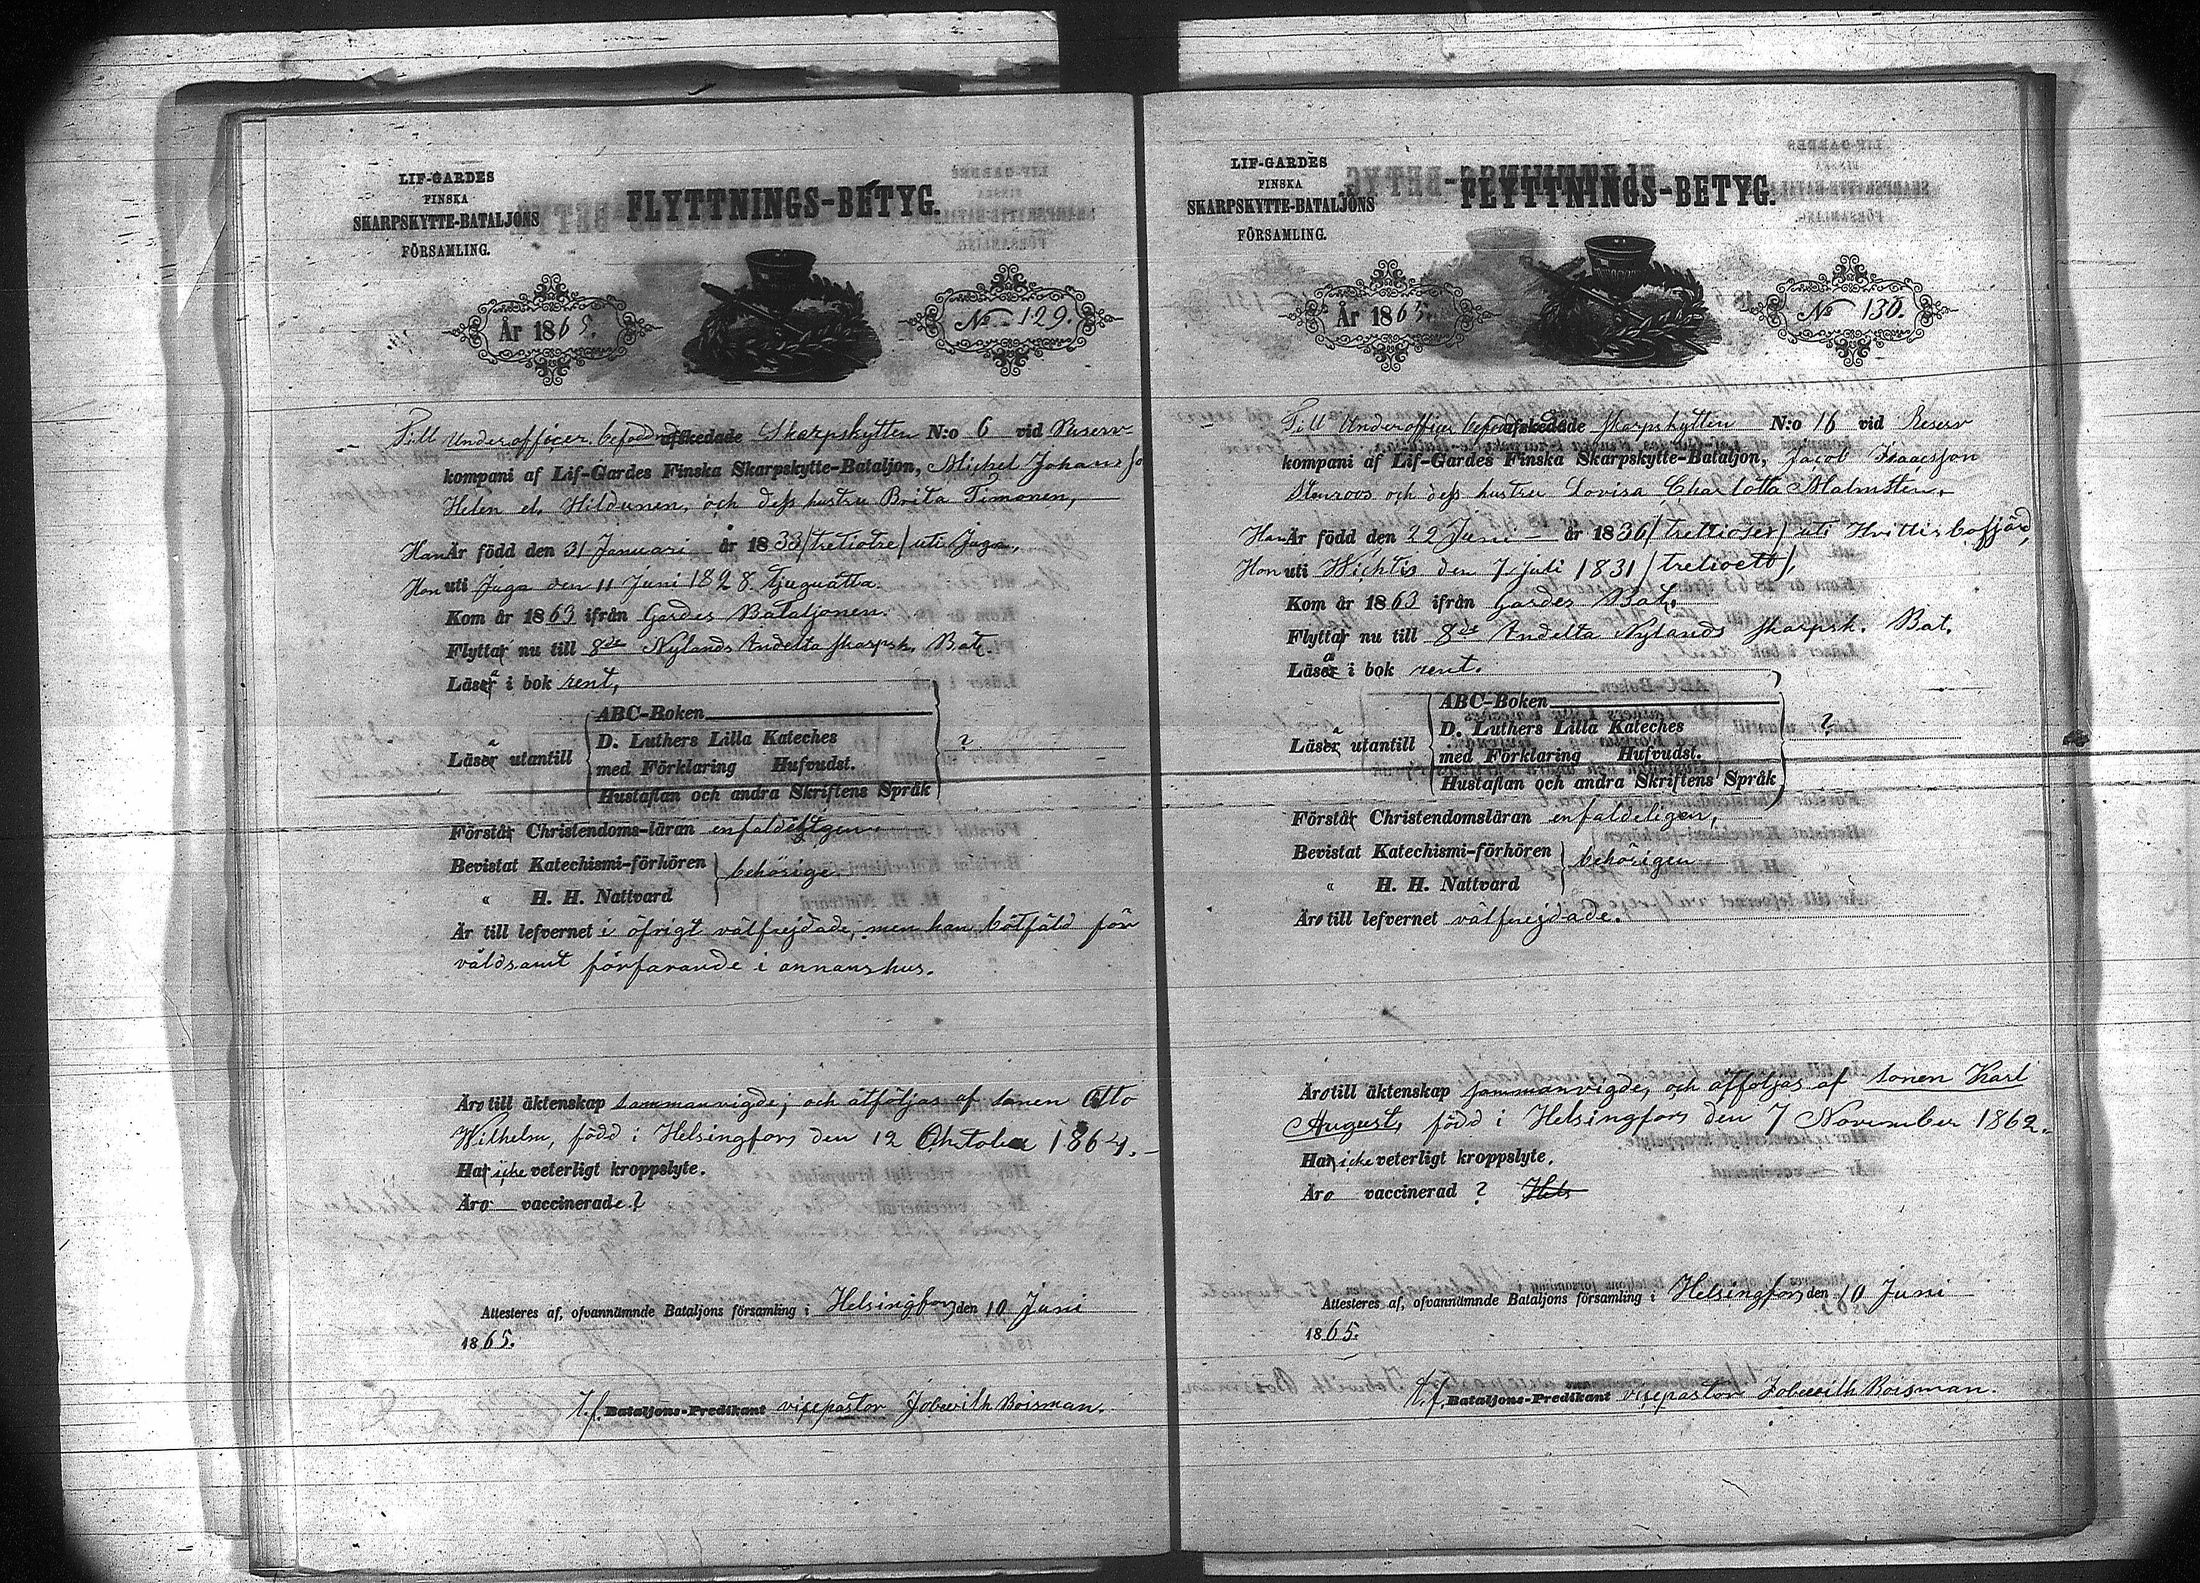 LIF-GARDES
FINSKA
SKARPSKYTTE-BATALJONS
FÖRSAMLING.
FLYTTNINGS-BETYG.
År 1865.
No 129.
Till Underofficer befordr afskedade Skarpskytten N:o 6 vid Reserv
kompani af Lif-Gardes Finska Skarpskytte-Bataljon, Michel Johansso
Helen el. Hildunen, och dess hustru Brita Timonen,
Han Är född den 31 Januari år 1833/tretiotre/uti Juga,
Hon uti Juga den 11 Juni 1828. tjuguåtta.
Kom år 1863 ifrån Gardes Bataljonen.
Flyttar nu till 8de Nylands Indelta Skarpsk. Bat.
Läsa i bok rent,
Läsa utantill
ABC-Boken
D. Luthers Lilla Kateches
med Förklaring Hufvudst.
Hustaflan och andra Skriftens Språk
?
Förstår Christendoms-läran enfaldeligen.
Bevistat Katechismi-förhören
" H. H. Nattvard
behörige.
Är till lefvernet i öfrigt välfrejdade, men han bötfäld för
våldsamt förfarande i annans hus.
Äro till äktenskap sammanvigde, och åtföljas af sonen Otto
Wilhelm, född i Helsingfors den 12 Oktober 1864.
Har icke veterligt kroppslyte.
Äro vaccinerade?
Attesteres af, ofvannämnde Bataljons församling i Helsingfors den 10 Juni
1865.
t.f. Bataljons-Predikant vicepastor Jobwith Boisman.
LIF-GARDES
FINSKA
SKARPSKYTTE-BATALJONS
FÖRSAMLING.
FLYTTNINGS-BETYG.
År 1865.
No 130.
Till Underofficer afskedade Skarpskytten N:o 16 vid Reserv
kompani af Lif-Gardes Finska Skarpskytte-Bataljon, Jacob Isaacsson
Stenroos och dess hustru Lovisa Charlotta Malmsten.
Han Är född den 22 Juni år 1836/trettiosex/uti Hvittisbofjärd,
Hon uti Wichtis den 7 Juli 1831/tretioett/,
Kom år 1863 ifrån Gardes Bat.
Flyttar nu till 8de Indelta Nylands Skarpsk. Bat.
Läsa i bok rent.
Läsa utantill
ABC-Boken
D. Luthers Lilla Kateches
med Förklaring Hufvudst.
Hustaflan och andra Skriftens Språk
?
Förstår Christendomsläran enfaldeligen,
Bevistat Katechismi-förhören
" H. H. Nattvard
behörigen
Äro till lefvernet välfrejdade.
Äro till äktenskap sammanvigde, och åtföljas af sonen Karl
August, född i Helsingfors den 7 November 1862.
Har icke veterligt kroppslyte.
Äro vaccinerad ? Hels
Attesteres af, ofvannämnde Bataljons församling i Helsingfors den 10 Juni
1865.
t.f. Bataljons-Predikant vicepastor Jobwith Boisman.